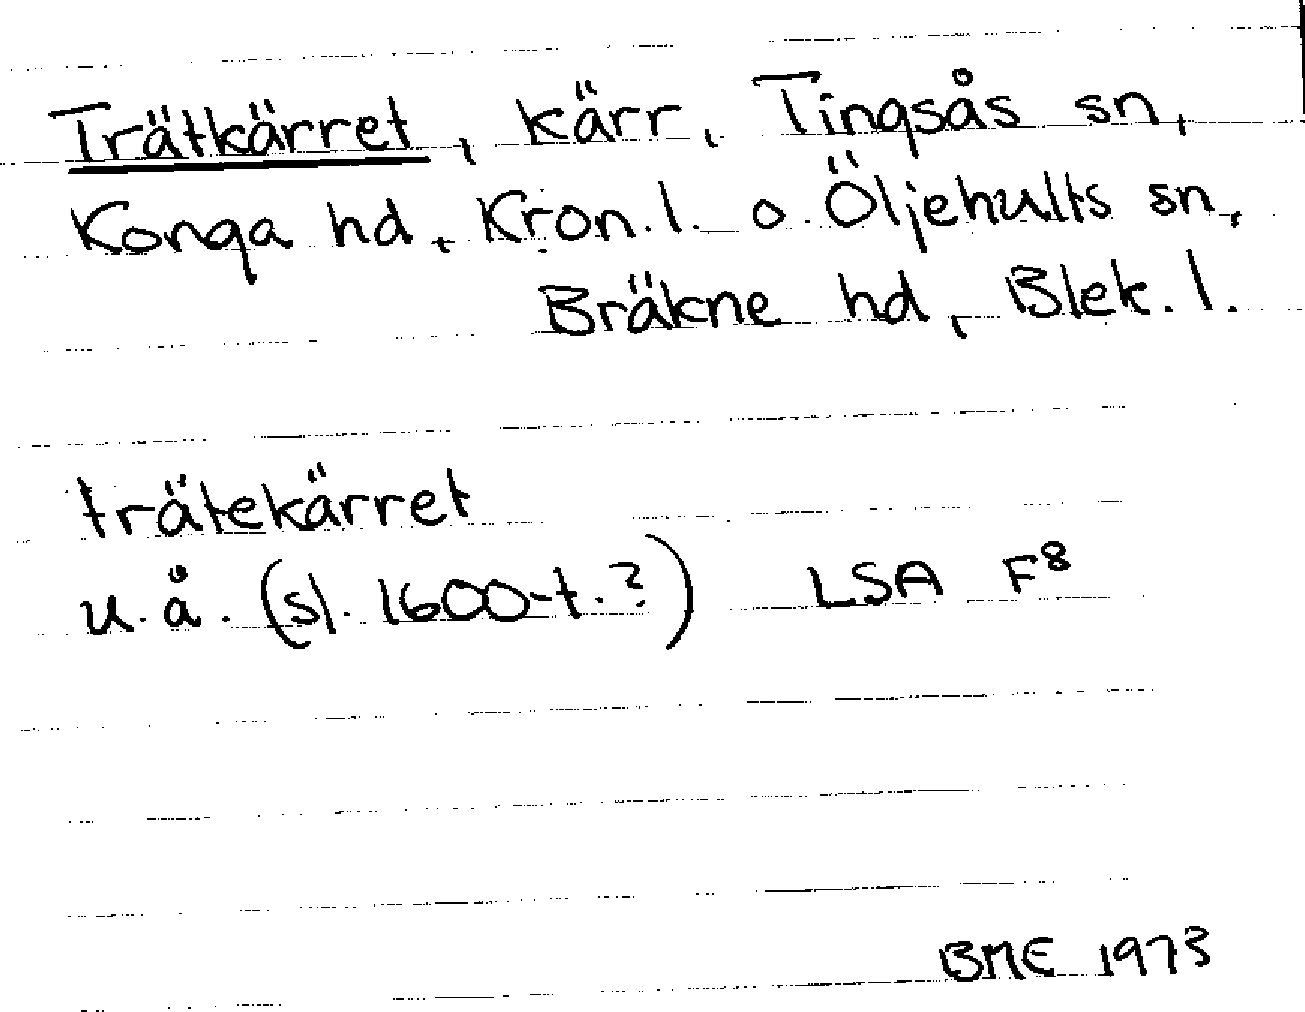 Trätkärret, kärr, Tingsås sn,
Konga hd, Kron. l. o. Öljehults sn,
Bräkne hd, Blek. l.
trätekärret
u. å. (sl. 1600-t. ?) LSA F8
BME 1973